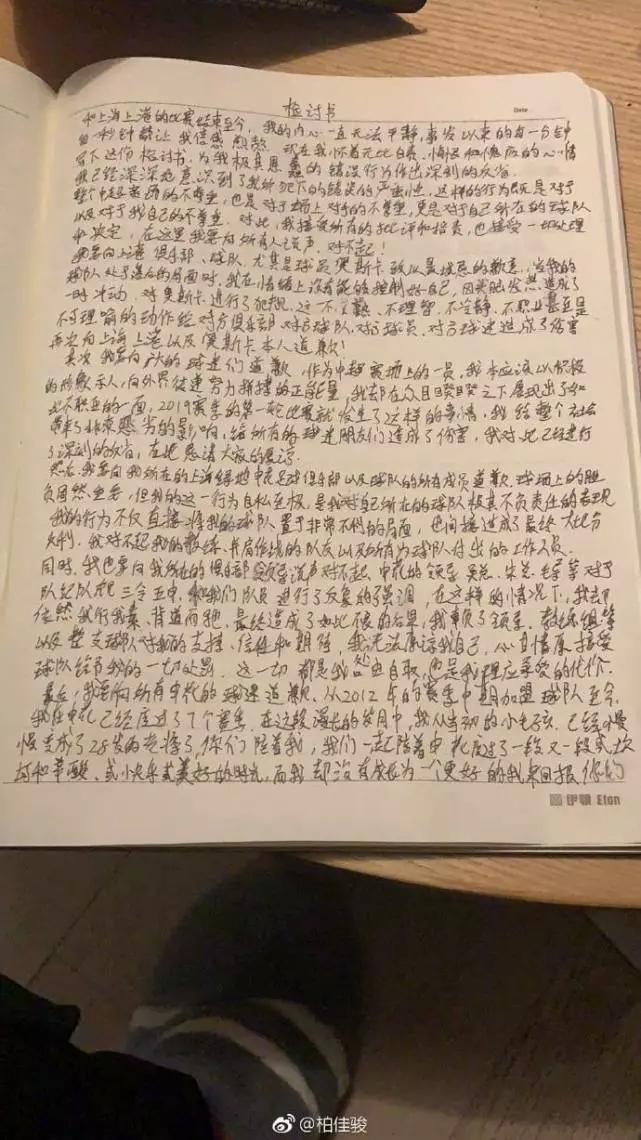 检讨书
Date
和上海上港的比赛结束至今，我的内心一直无法平静，事发以来的每一分钟
每一秒钟都让我倍感煎熬。现在我怀着无比自责、悔恨和愧疚的心情
写下这份检讨书，为我极其愚蠢的错误行为作出深刻的反省
我已经深深地意识到了我所犯下的错误的严重性，这样的行为既是对于
整个中超赛场的不尊重，也是对于场上对手的不尊重，更是对于自己所在的球队
以及对于我自己的不尊重。对此，我接受所有的批评和指责，也接受一切处理
和决定，在这里我要向所有人说声，对不起！
我要向上港俱乐部、球队，尤其是球员奥斯卡致以最诚恳的歉意，当我的
球队处于落后的局面时，我在情绪上没有能够控制好自己，因头脑发热造成了
一时冲动，对奥斯卡进行了犯规，这一不道德、不理智、不冷静、不职业甚至是
不可理喻的动作给对方俱乐部对方球队、对方球员、对方球迷造成了伤害
再次向上海上港以及奥斯卡本人道歉！
其次，我要向广大的球迷们道歉，作为中超赛场上的一员，我本应该以积极
的形象示人，向外界传递努力拼搏的正能量，我却在众目睽睽之下展现出了如
此不职业的一面，2019赛季的第一轮比赛就发生了这样的事情，我给整个社会
带来了非常恶劣的影响，给所有的球迷朋友们造成了伤害，我对此已经进行
了深刻的反省，在此恳请大家的原谅
然后，我要向我所在的上海绿地申花足球俱乐部以及球队的所有成员道歉，球场上的胜
负固然重要，但我的这一行为自私至极，是我对自己所在的球队极其不负责任的表现
我的行为不仅直接将我的球队置于非常不利的局面，也间接造成了最终大比分
失利。我对不起我的教练、并肩作战的队友以及所有为球队付出的工作人员。
同时，我也要向我所在的俱乐部领导说声对不起，申花的领导吴总、朱总、毛导等对于
队纪队规三令五申，和我们队员进行了反复的强调，在这样的情况下，我却
依然我行我素、背道而驰，最终造成了如此不良的后果，我辜负了领导、教练组等
以及整支球队对我的支持、信任和期待，我无法原谅我自己，心甘情愿接受
球队给予我的一切处罚，这一切都是我咎由自取，也是我理应承受的代价。
最后，我要向所有申花的球迷道歉，从2012年的赛季中期加盟球队至今，
我在申花已经度过了7个赛季，在这段漫长的岁月中，我从当初的小毛孩，已经慢
慢变成了28岁的老将了，你们陪着我，我们一起陪着申花度过了一段又一段或坎
坷和辛酸、或小快乐或美好的时光，而我却没有成长为一个更好的我来回报你们
伊顿 Eton
@柏佳骏